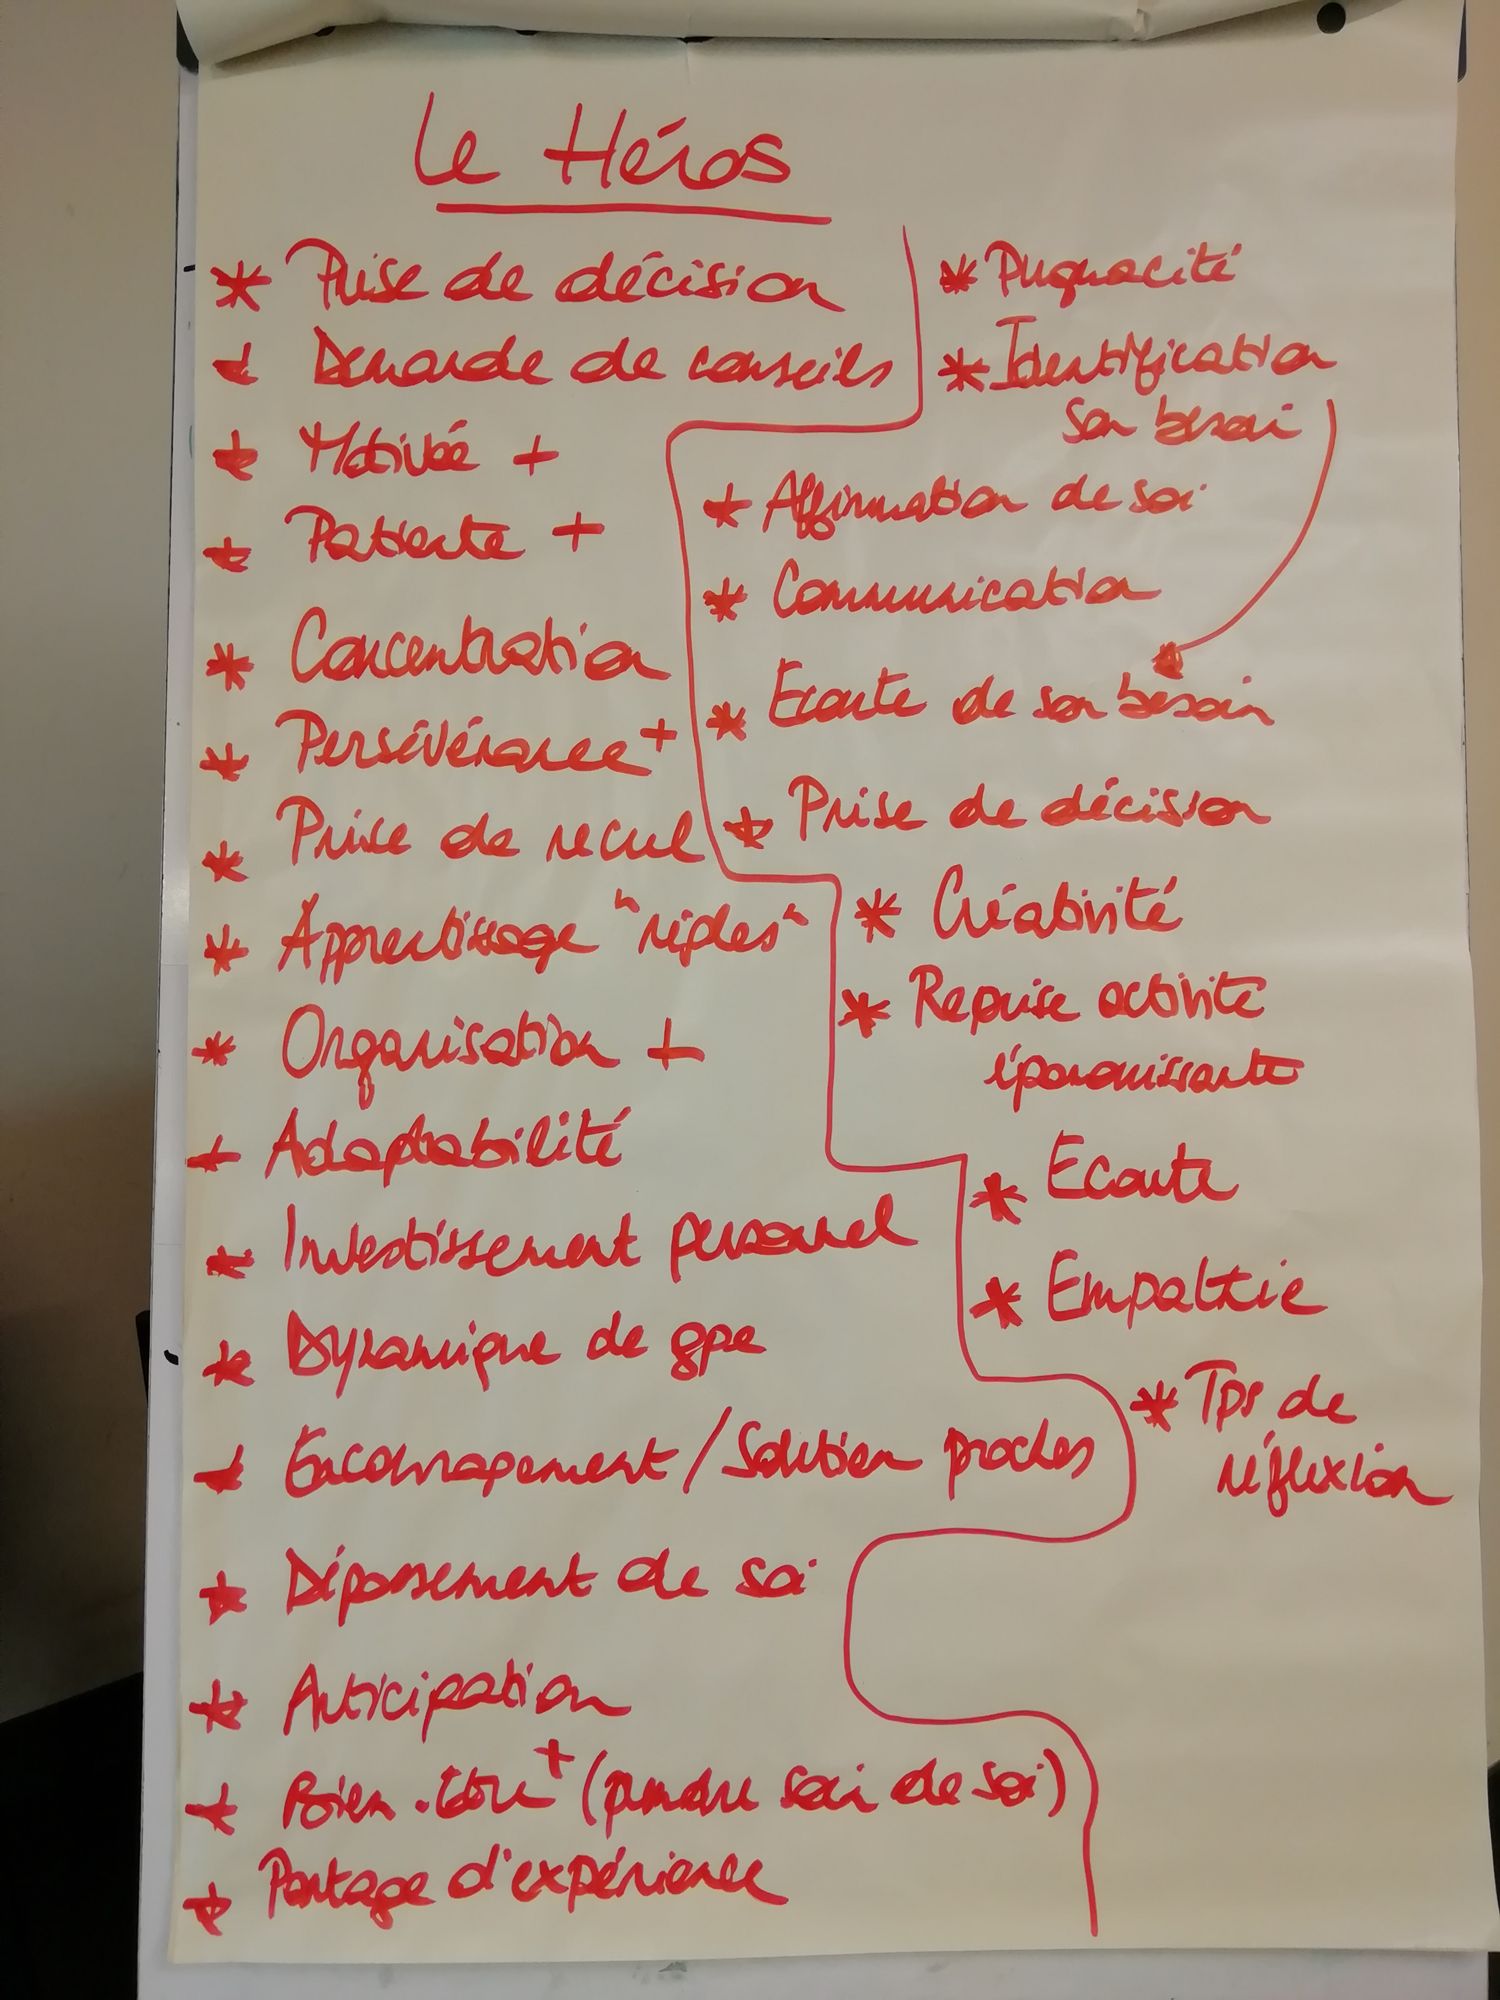 Le Héros
* Prise de décision
* Demande de conseils
* Motivée +
* Patiente +
* Concentration
* Persévérance +
* Prise de recul
* Apprentissage "règles"
* Organisation +
* Adaptabilité
* Investissement personnel
* Dynamique de gpe
* Encouragement / Solution proches
* Dépassement de soi
* Anticipation
* Bien-être + (prendre soin de soi)
* Partage d'expérience
* Pugnacité
* Identification
son besoin
* Affirmation de soi
* Communication
* Ecoute de son besoin
* Prise de décision
* Créativité
* Reprise activité
épanouissante
* Ecoute
* Empathie
* Tps de
réflexion